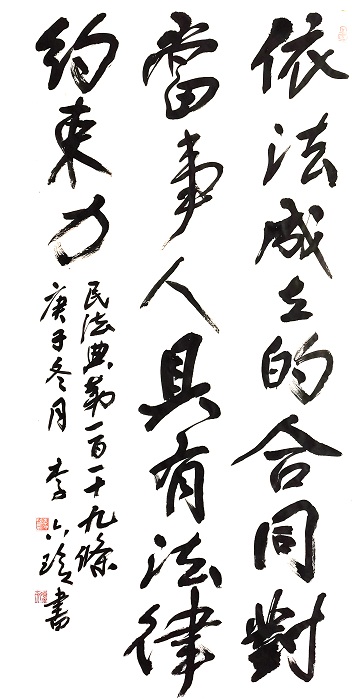 依法成立的合同對
當事人具有法律
約束力
民法典第一百一十九條
庚子冬月 李 書